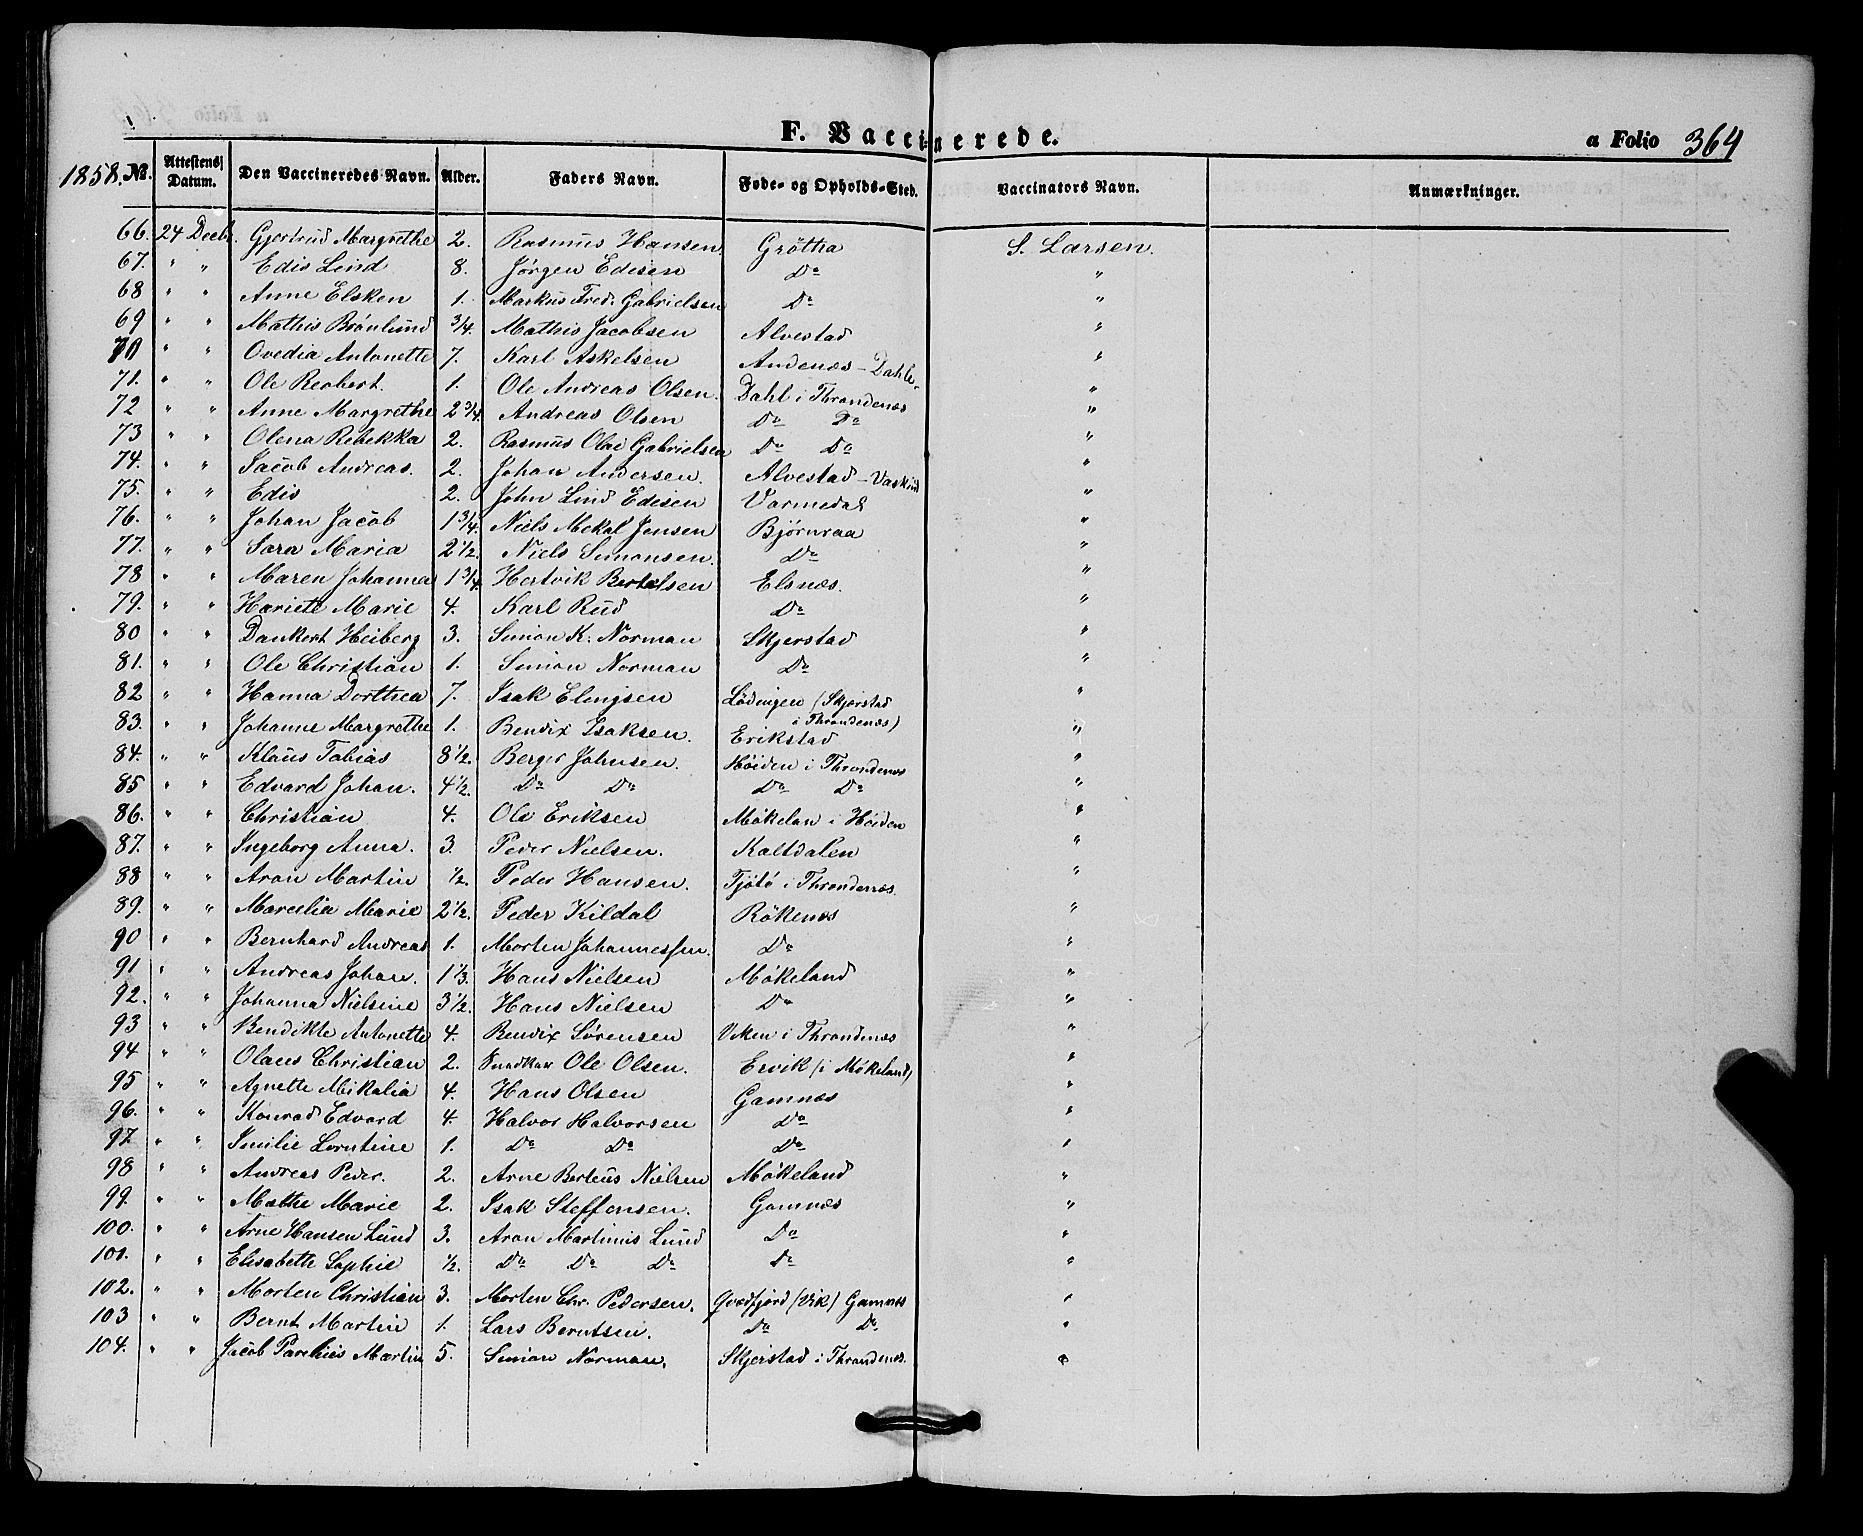 F. Vaccinerede.
a Folio 364
1858. No. Attestens Datum. Den Vaccineredes Navn. Alder. Faders Navn. Føde- og Opholds-Sted. Vaccinators Navn. Anmærkninger.
66. 24 Decbr. Gjertrud Margrethe 2. Rasmus Hansen Grøtha S. Larsen.
67. " " Edis Lind 8. Jørgen Edisen Do "
68 " " Anne Elsken 1. Markus Fred. Gabrielsen Do "
69 " " Mathis Brønlund 3/4. Mathis Jacobsen Alvestad "
70 " " Ovedia Antonette 7. Karl Askelsen Andenæs - Dahle. "
71. " " Ole Reobert. 1. Ole Andreas Olsen. Dahl i Throndenæs "
72 " " Anne Margrethe 2 3/4. Andreas Olsen Do Do "
73 " " Olena Rebekka 2. Rasmus Olai Gabrielsen Do Do "
74. " " Jacob Andreas. 2. Johan Andersen. Alvestad - "
75. " " Edis 2. John Lind Edisen Varmedal "
76. " " Johan Jacob 1 3/4. Niels Mekal Jensen Bjørnraa "
77. " " Sara Maria 2 1/2. Niels Simonsen. Do "
78 " " Maren Johanna 1 3/4. Hertvik Bertelsen Elsnæs. "
79. " " Hariete Marie 4. Karl Rud Do "
80 " " Dankert Heiberg 3. Simon K. Norman Skjerstad "
81. " " Ole Christian 1. Simon Norman Do "
82 " " Hanna Dorthea 7. Isak Elingsen Lødingen (Skjerstad i Throndenæs) "
83. " " Johanne Margrethe 1. Bendix Isaksen. Erikstad "
84. " " Klaus Tobias 8 1/2. Berger Johnsen. Høiden i Throndenæs "
85 " " Edvard Johan. 4 1/2. Do Do Do Do "
86. " " Christian 4. Ole Eriksen Møkelan i Høiden "
87. " " Ingeborg Anna. 3. Peder Nielsen. Kaltdalen "
88 " " Aron Martin 1/2. Peder Hansen. Tjøtø i Throndenæs. "
89. " " Marcelia Marie 2 1/2. Peder Kildal Røkenæs "
90 " " Bernhard Andreas 1. Morten Johannessen. Do "
91 " " Andreas Johan. 1 1/3. Hans Nielsen Møkeland "
92. " " Johanna Nielsine 3 1/2. Hans Nielsen Do "
93 " " Bendikte Antonette 4. Bendix Sørensen Viken i Throndenæs "
94 " " Olaus Christian 2. Ole Olsen. Ervik (i Møkeland) "
95 " " Agnette Mikalia 4. Hans Olsen Gamnæs "
96. " " Konrad Edvard 4. Halvor Halvorsen Do "
97. " " Emilie Lorntine 1. Do Do Do "
98 " " Andreas Peder. 2. Arne Berteus Nielsen Møkeland "
99. " " Mathe Marie 2. Isak Steffensen. Gamnæs "
100. " " Arne Hansen Lund 3. Aron Martinus Lund Do "
101. " " Elisabeth Sophie 1/2. Do Do Do Do "
102. " " Morten Christian 3. Morten Chr. Pedersen. Qvædfjord (Vik) Gamnæs "
103 " " Bernt Martin 1. Lars Berntsen. Do Do "
104. " " Jacob Parelius Martin 5. Simon Norman. Skjerstad i Throndenæs. "